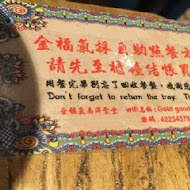 金福氣採自助點餐方
請先至櫃檯結帳
用餐完畢別忘了回收餐盤,感謝您
Don't forget to return the tray. Th
金福氣南洋食堂 wifi名稱:Gold good
密碼:42254375